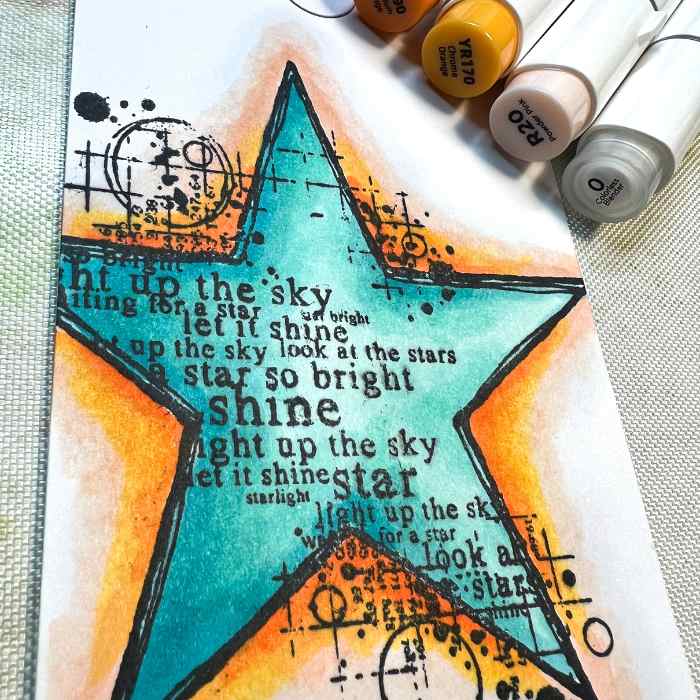 YR170
Chrome
Orange
R20
Powder Pink
0
Colorless
Blender
bright
ht up the sky
iting for a star
star bright
let it shine
t up the sky look at the stars
a star so bright
shine
light up the sky
let it shine star
starlight
light up the sky
for a star
look a
stars
shine